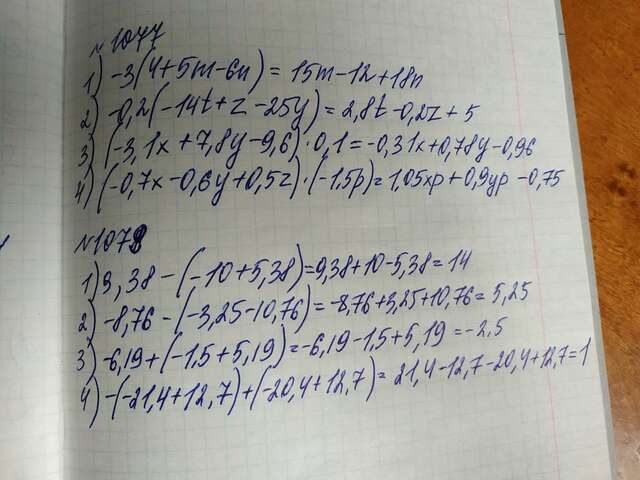 №1077
1) -3(4+5m-6n) = 15m-12+18n
2) -0,2(-14t+z-25y) = 2,8t-0,2z+5
3) (-3,1x+7,8y-9,6)·0,1=-0,31x+0,78y-0,96
4) (-0,7x-0,6y+0,5z)·(-1,5p)=1,05xp+0,9yp-0,75
№1078
1) 9,38-(-10+5,38)=9,38+10-5,38=14
2) -8,76-(-3,25-10,76)=-8,76+3,25+10,76=5,25
3) -6,19+(-1,5+5,19)=-6,19-1,5+5,19=-2,5
4) -(-21,4+12,7)+(-20,4+12,7)=21,4-12,7-20,4+12,7=1